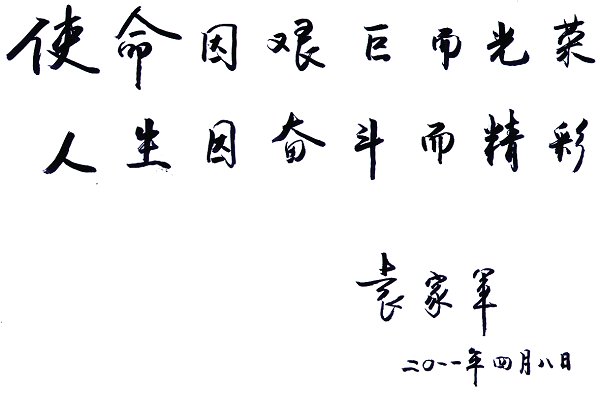 使命因艰巨而光荣
人生因奋斗而精彩
袁家军
二〇一一年四月八日